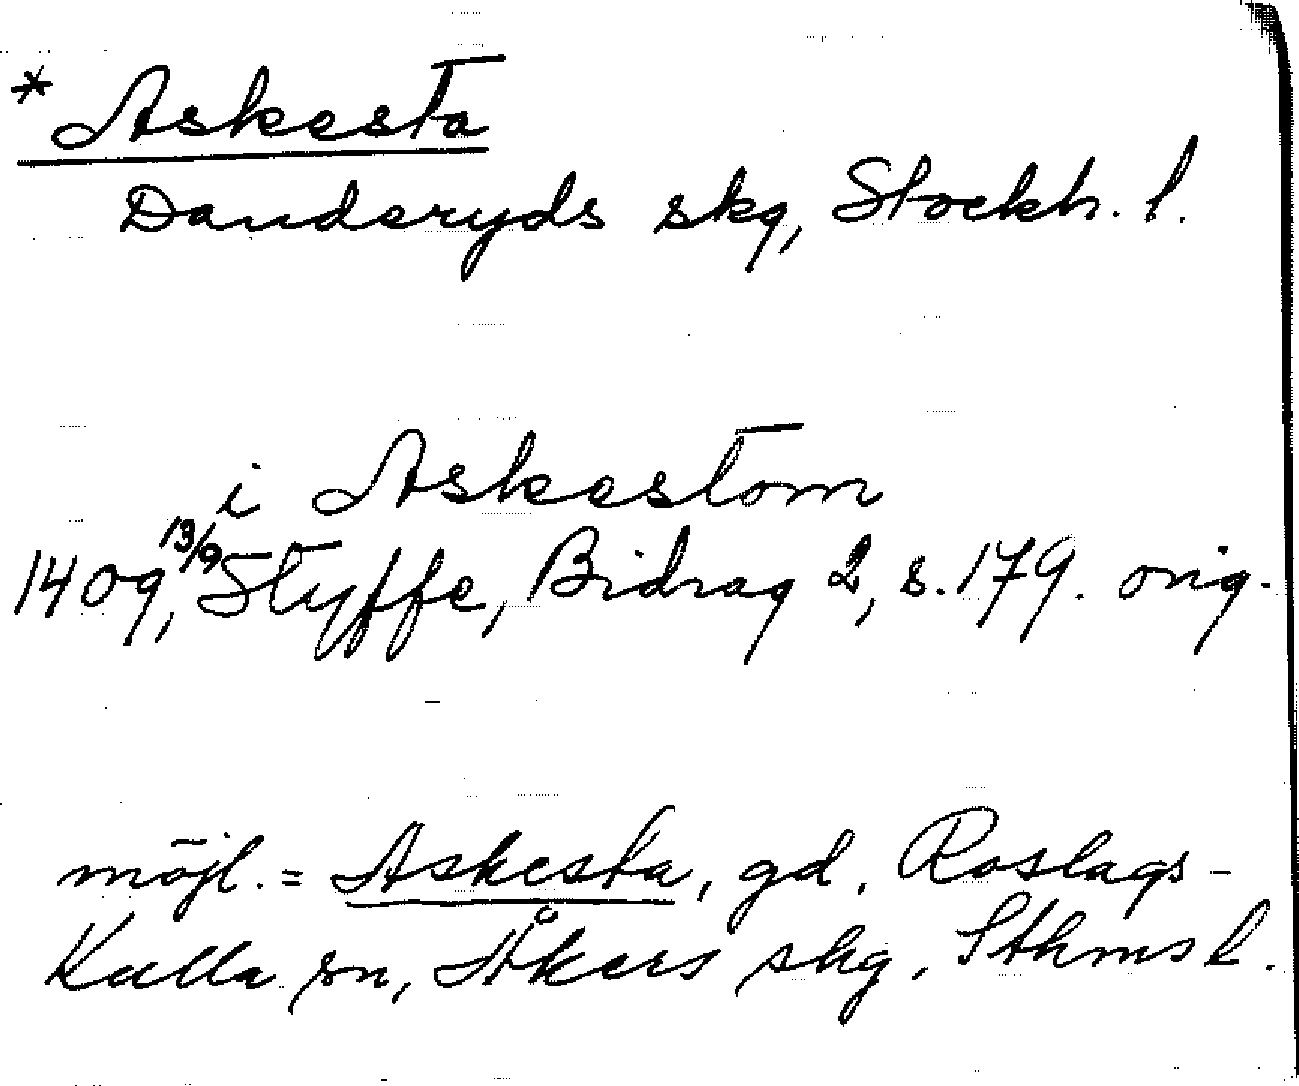 * Askesta
Danderyds skg, Stockh. l.
i Askestom
1409 13/9, Styffe, Bidrag 2, s. 179. orig.
möjl. = Askesta, gd, Roslags-
Kulla sn, Åkers skg, Sthms l.